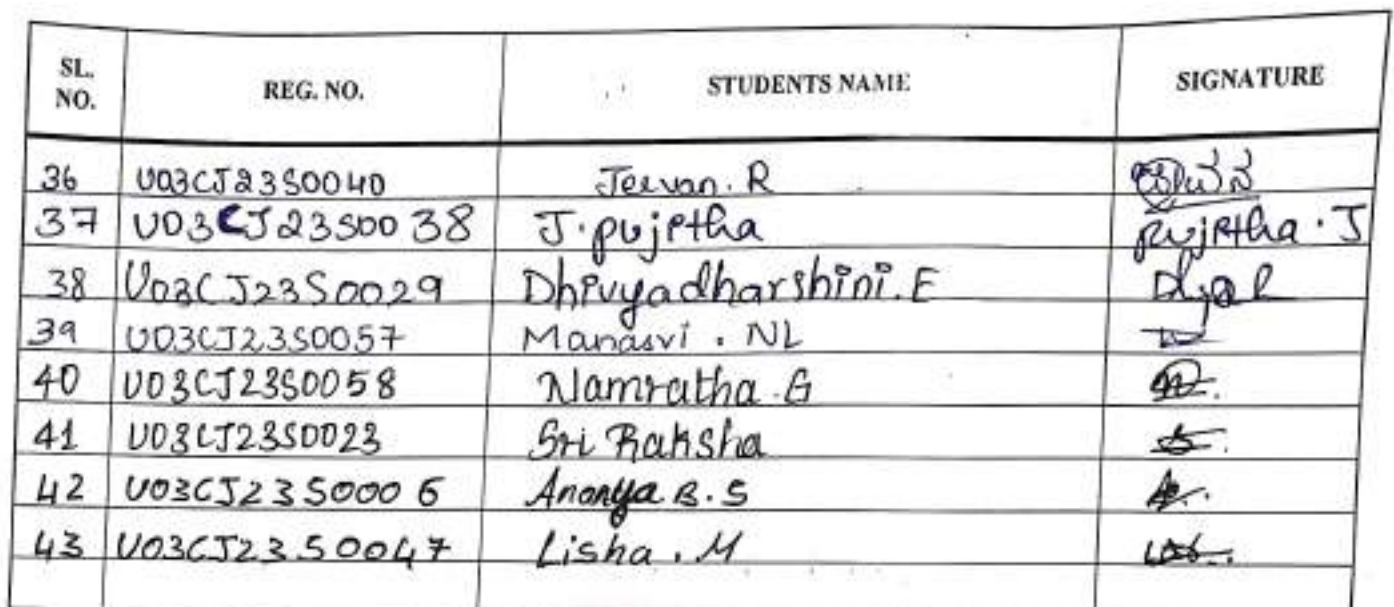 SL. NO. REG. NO. STUDENTS NAME SIGNATURE
36 U03CJ23S0040 Jeevan. R
37 U03CJ23S0038 J. pujitha pujitha. J
38 U03CJ23S0029 Dhivyadharshini. E
39 U03CJ23S0057 Manasvi. NL
40 U03CJ23S0058 Namratha. G
41 U03CJ23S0023 Sri Raksha
42 U03CJ23S0006 Ananya B. S
43 U03CJ23S0047 Lisha. M